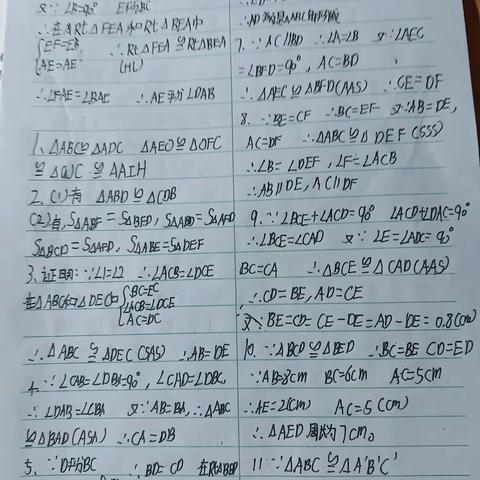 又∵∠B=90° EF⊥BC
∴在Rt△FEA和Rt△BEA中
{EF=EB
AE=AE
∴Rt△FEA≌Rt△BEA
(HL)
∴∠FAE=∠BAE ∴AE平分∠DAB
1、△ABC≌△ADC △AEO≌△OFC
2、(1)有 △ABD≌△CDB
(2)有,S△ABF=S△BFD, S△ABD=S△AFD
S△BCD=S△AFD, S△ABE=S△DEF
3、证明:∵∠1=∠2 ∴∠ACB=∠DCE
在△ABC和△DEC中{BC=EC
∠ACB=∠DCE
AC=DC
∴△ABC≌△DEC(SAS) ∴AB=DE
4、∵∠CAB=∠DBA=90°,∠CAD=∠DBC,
∴∠DAB=∠CBA 又∵AB=BA,∴△ABC
≌△BAD(ASA) ∴CA=DB
5、∵D平分BC ∴BD=CD
7、∵AC∥BD ∴∠A=∠B 又∵∠AEC
=∠BFD=90°,AC=BD
∴△AEC≌△BFD(AAS) ∴CE=DF
8、∵BE=CF ∴BC=EF 又∵AB=DE,
AC=DF ∴△ABC≌△DEF(SSS)
∴∠B=∠DEF,∠F=∠ACB
∴AB∥DE,AC∥DF
9、∵∠BCE+∠ACD=90° ∠ACD+∠DAC=90°
∴∠BCE=∠CAD 又∵∠E=∠ADC=90°
BC=CA ∴△BCE≌△CAD(AAS)
∴CD=BE,AD=CE
又∵BE=CD=CE-DE=AD-DE=0.8(cm)
10、∵△BCD≌△BED ∴BC=BE CD=ED
∵AB=8cm BC=6cm AC=5cm
∴AE=2(cm) AC=5(cm)
∴△AED周长为7cm。
11∵△ABC≌△A'B'C'